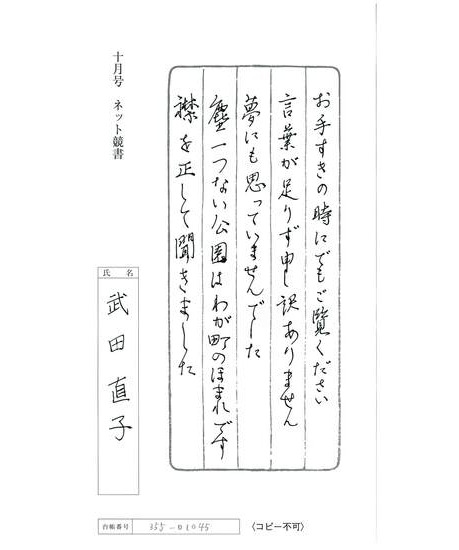 お手すきの時にでもご覧ください
言葉が足りず申し訳ありません
夢にも思っていませんでした
塵一つない公園はわが町のほまれです
襟を正して聞きました
十月号 ネット競書
氏名
武田直子
台帳番号 355-01045
〈コピー不可〉